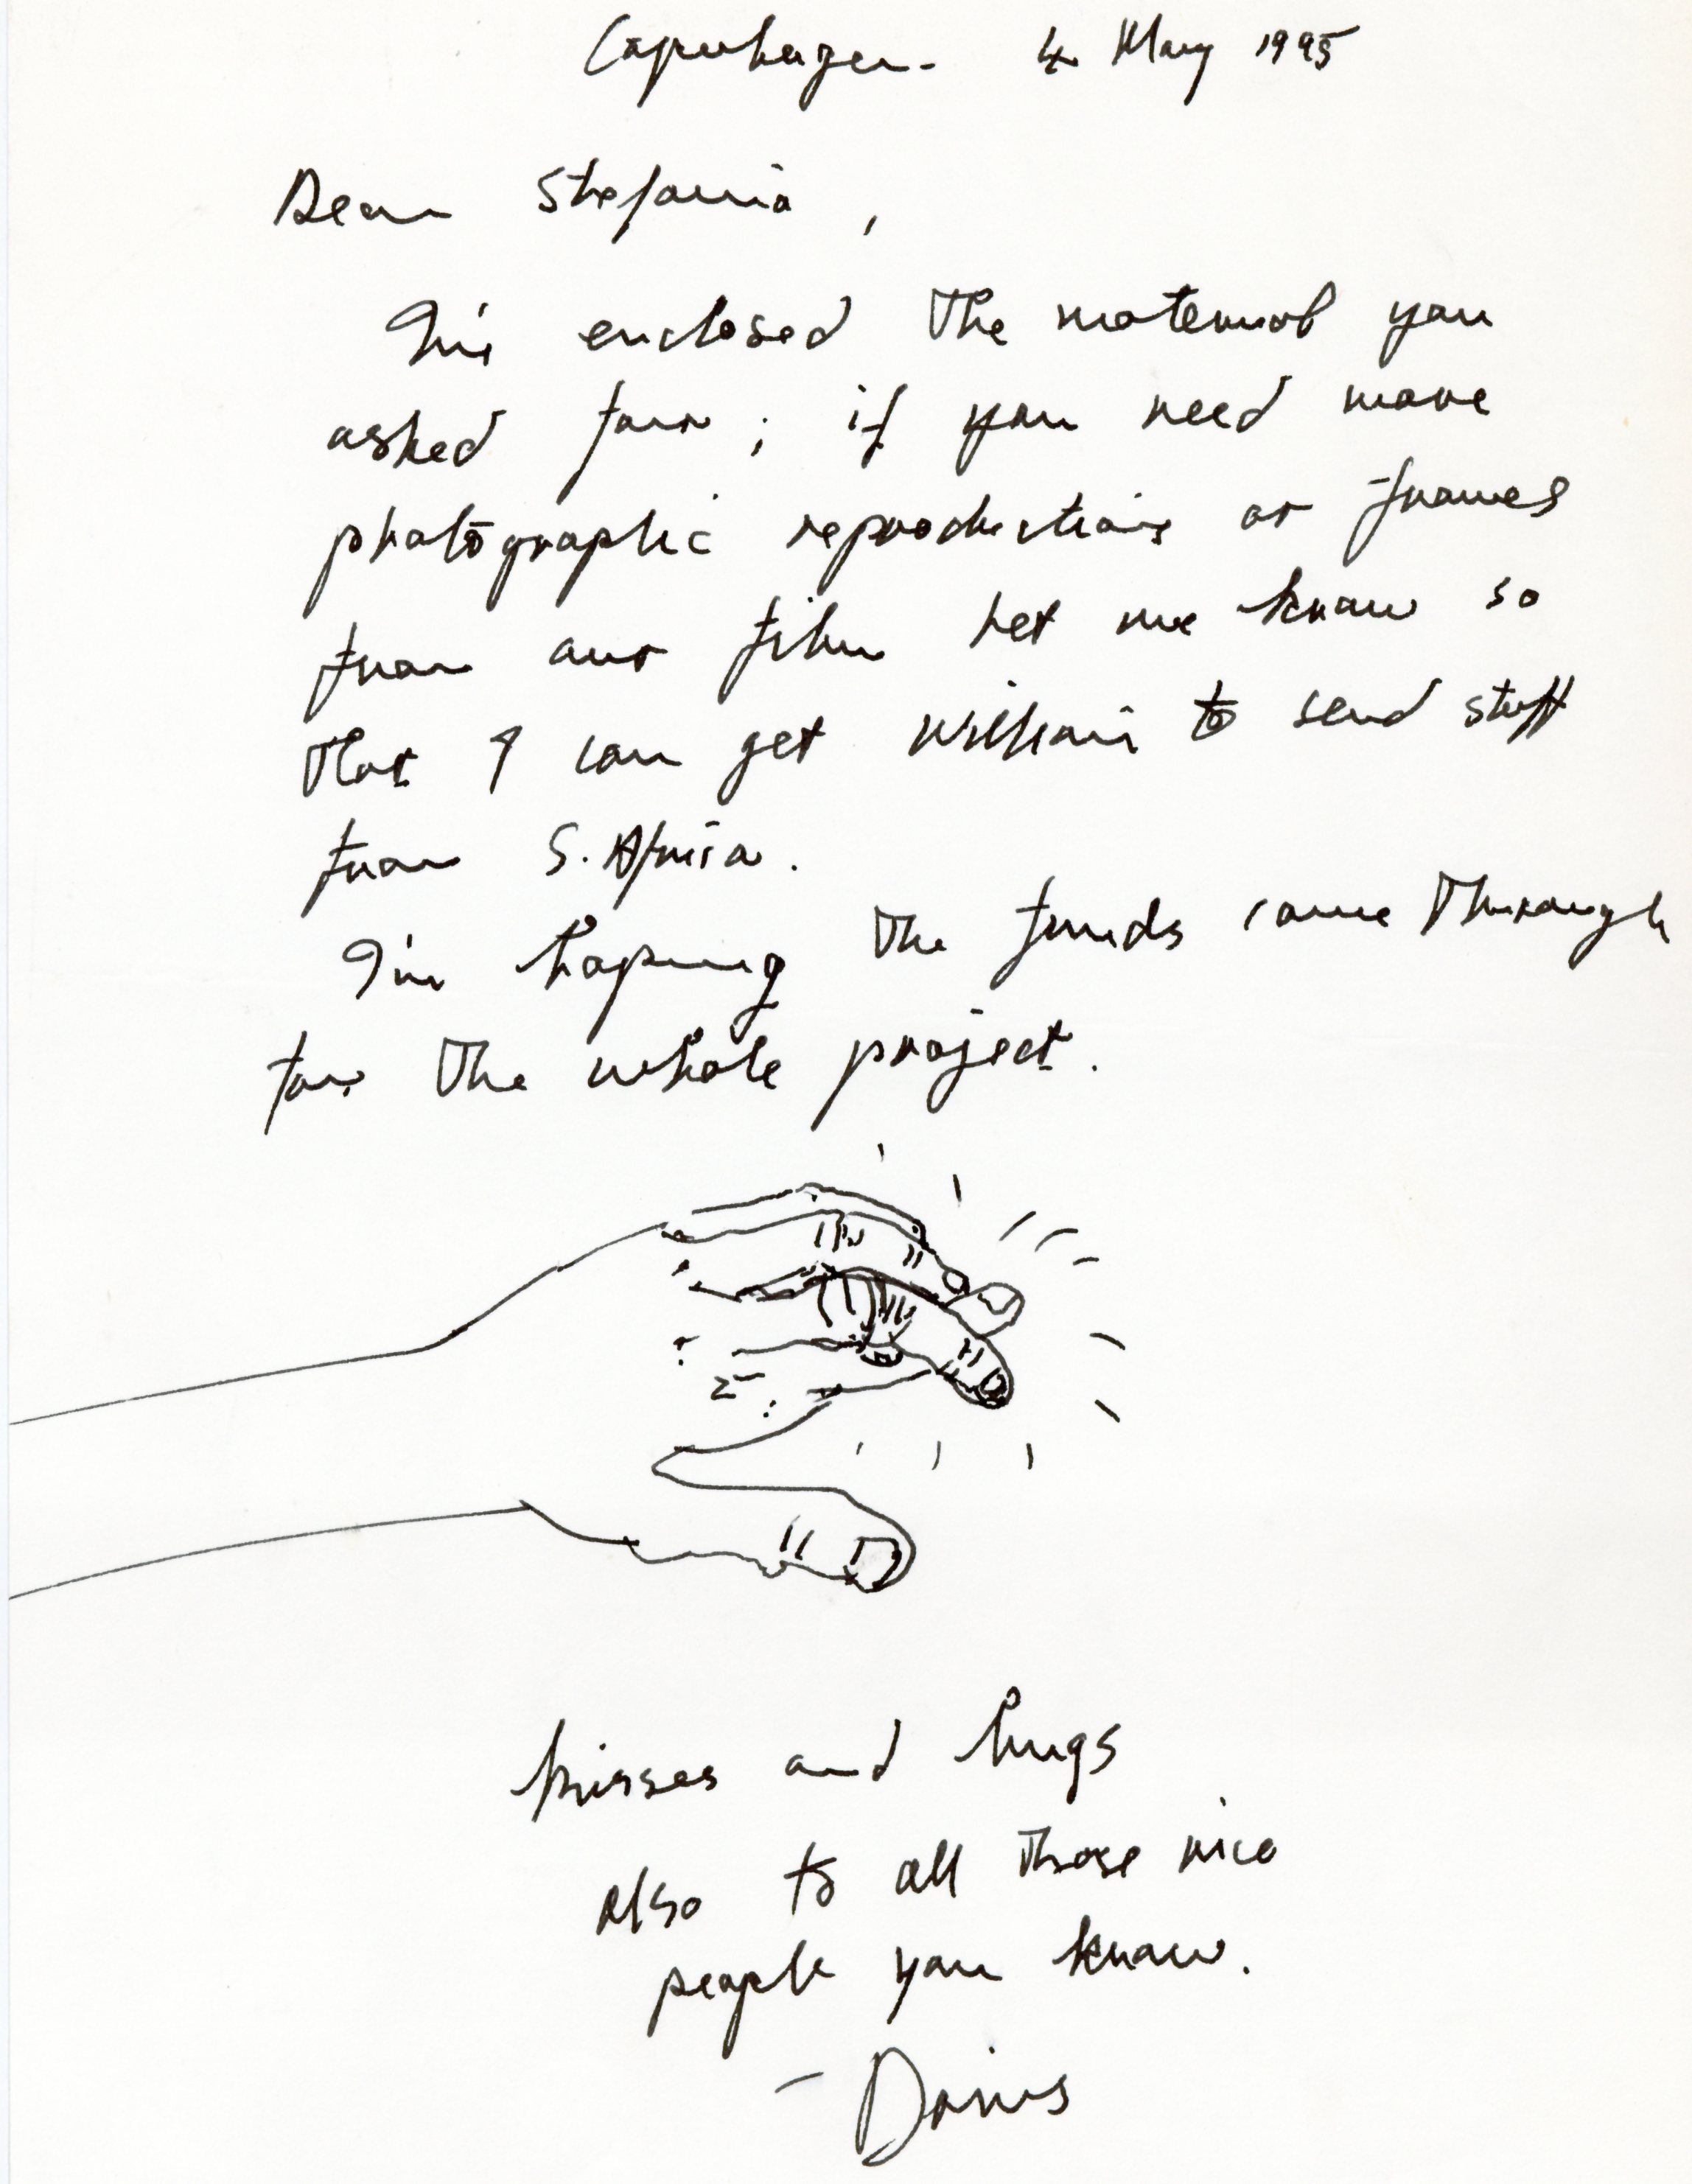 Copenhagen - 4 May 1995
Dear Stefania,
I'm enclosed the material you
asked four ; if you need more
photographic reproductions or frames
from our film let me know so
that I can get William to send stuff
from S. Africa.
I'm hoping the funds come through
for the whole project.
kisses and hugs
also to all those nice
people you know.
- Doris